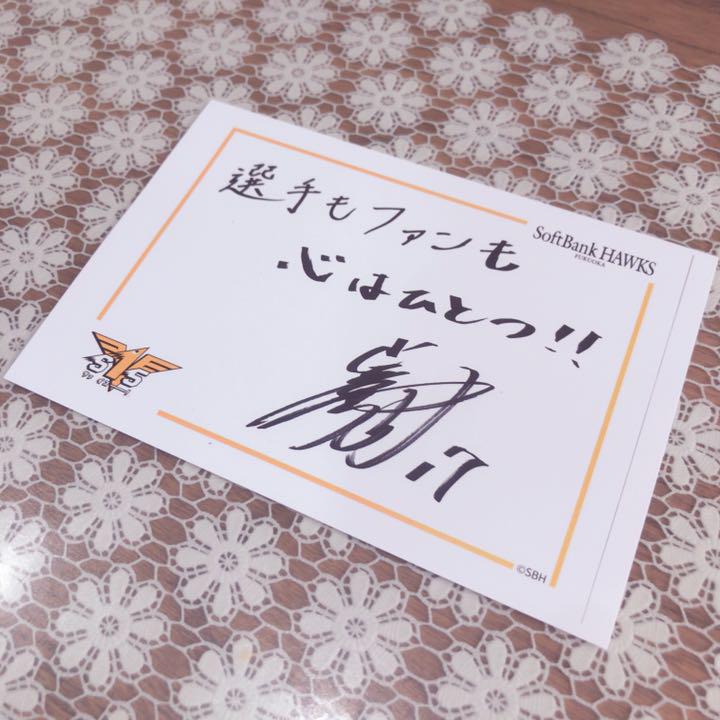 選手もファンも
心はひとつ!!
SoftBank HAWKS
FUKUOKA
17
©SBH